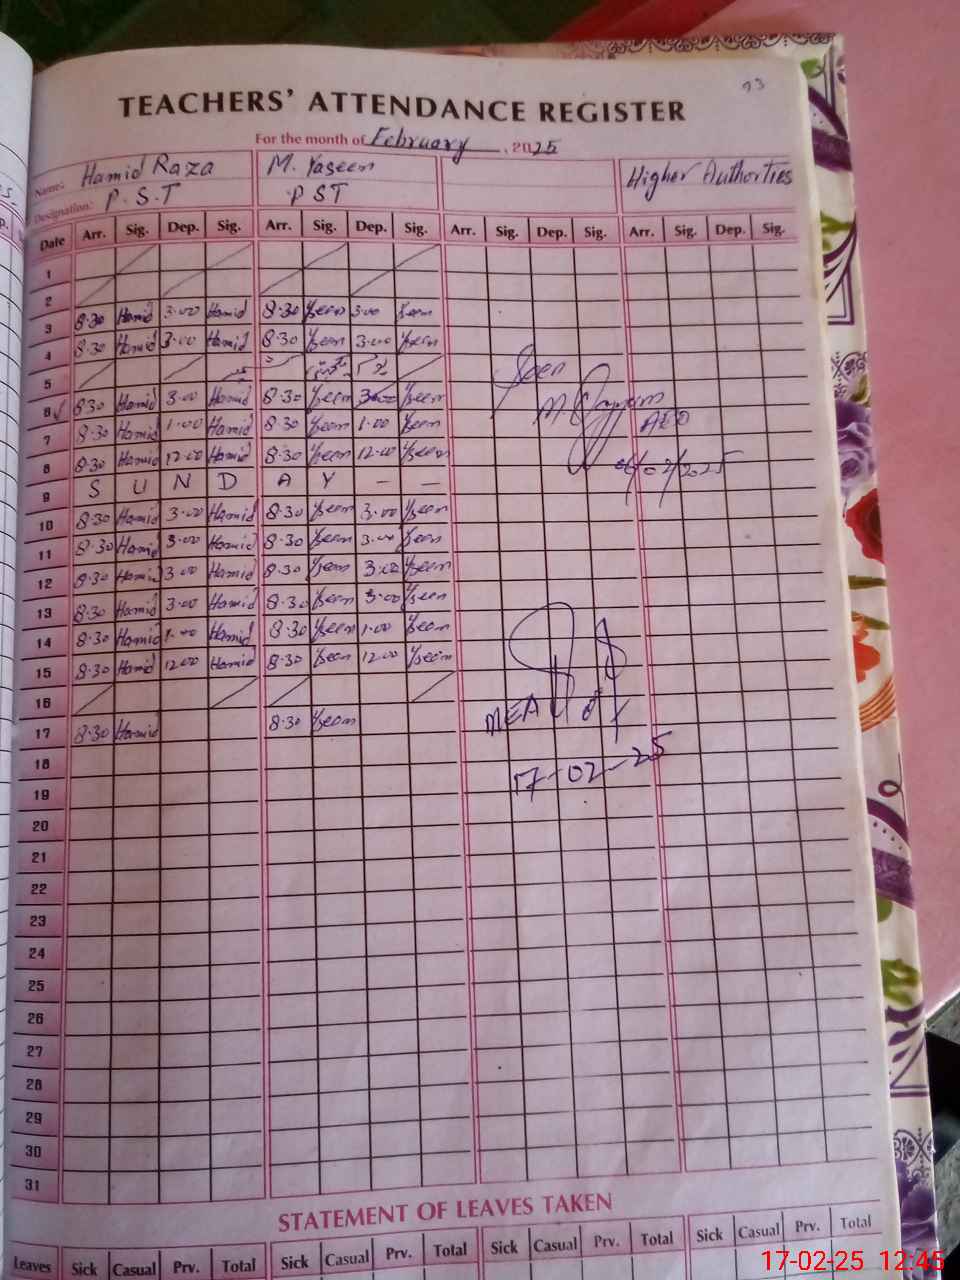 93
TEACHERS' ATTENDANCE REGISTER
For the month of February, 2025
Name: Hamid Raza M. Yaseen Higher Authorties
Designation: P.S.T PST
Date Arr. Sig. Dep. Sig. Arr. Sig. Dep. Sig. Arr. Sig. Dep. Sig. Arr. Sig. Dep. Sig.
1
2
3 8.30 Hamid 3.00 Hamid 8.30 Yseen 3.00 Yseen
4 8.30 Hamid 3.00 Hamid 8.30 Yseen 3.00 Yseen
5
Seen
6 8.30 Hamid 3.00 Hamid 8.30 Yseen 3.00 Yseen
AEO
7 8.30 Hamid 1.00 Hamid 8.30 Yseen 1.00 Yseen
8 8.30 Hamid 12.00 Hamid 8.30 Yseen 12.00 Yseen
06/02/2025
9 S U N D A Y - -
10 8.30 Hamid 3.00 Hamid 8.30 Yseen 3.00 Yseen
11 8.30 Hamid 3.00 Hamid 8.30 Yseen 3.00 Yseen
12 8.30 Hamid 3.00 Hamid 8.30 Yseen 3.00 Yseen
13 8.30 Hamid 3.00 Hamid 8.30 Yseen 3.00 Yseen
14 8.30 Hamid 1.00 Hamid 8.30 Yseen 1.00 Yseen
15 8.30 Hamid 12.00 Hamid 8.30 Yseen 12.00 Yseen
16
17 8.30 Hamid 8.30 Yseen
MEA
18
17-02-25
19
20
21
22
23
24
25
26
27
28
29
30
31
STATEMENT OF LEAVES TAKEN
Leaves Sick Casual Prv. Total Sick Casual Prv. Total Sick Casual Prv. Total Sick Casual Prv. Total
17-02-25 12:45